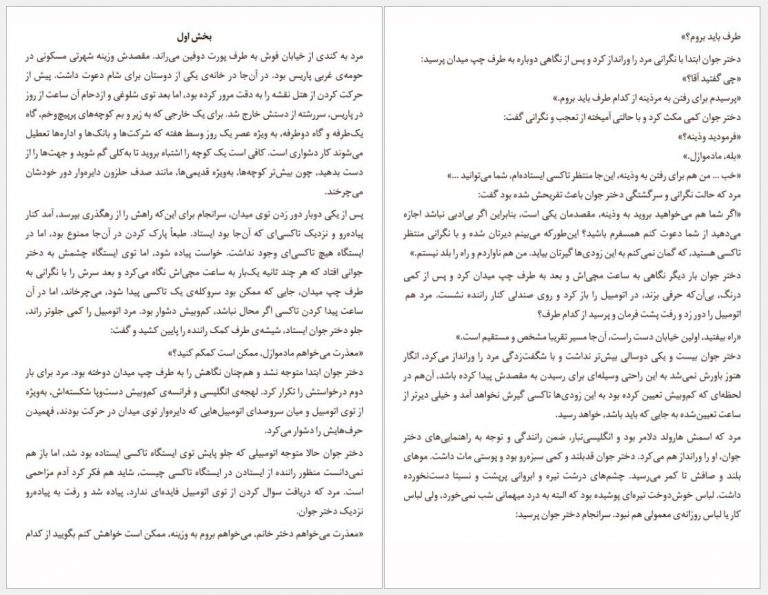 بخش اول
مرد به کندی از خیابان فوش به طرف پورت دوفین می‌راند. مقصدش وزینه شهرتی مسکونی در
حومه‌ی غربی پاریس بود. در آن‌جا در خانه‌ی یکی از دوستان برای شام دعوت داشت. پیش از
حرکت کردن از هتل نقشه را به دقت مرور کرده بود، اما بعد توی شلوغی و ازدحام آن ساعت از روز
در پاریس، سررشته از دستش خارج شد. برای یک خارجی که به زیر و بم کوچه‌های پرپیچ‌وخم، گاه
یک‌طرفه و گاه دوطرفه، به ویژه عصر یک روز وسط هفته که شرکت‌ها و بانک‌ها و اداره‌ها تعطیل
می‌شوند کار دشواری است. کافی است یک کوچه را اشتباه بروید تا به‌کلی گم شوید و جهت‌ها را از
دست بدهید، چون بیش‌تر کوچه‌ها، به‌ویژه قدیمی‌ها، مانند صدف حلزون دایره‌وار دور خودشان
می‌چرخند.
پس از یکی دوبار دور زدن توی میدان، سرانجام برای این‌که راهش را از رهگذری بپرسد، آمد کنار
پیاده‌رو و نزدیک تاکسی‌ای که آن‌جا بود ایستاد. طبعاً پارک کردن در آن‌جا ممنوع بود، اما در
ایستگاه هیچ تاکسی‌ای وجود نداشت. خواست پیاده شود، اما توی ایستگاه چشمش به دختر
جوانی افتاد که هر چند ثانیه یک‌بار به ساعت مچی‌اش نگاه می‌کرد و بعد سرش را با نگرانی به
طرف چپ میدان، جایی که ممکن بود سروکله‌ی یک تاکسی پیدا شود، می‌چرخاند، اما در آن
ساعت پیدا کردن تاکسی اگر محال نباشد، کم‌وبیش دشوار بود. مرد اتومبیل را کمی جلوتر راند،
جلو دختر جوان ایستاد، شیشه‌ی طرف کمک راننده را پایین کشید و گفت:
«معذرت می‌خواهم مادموازل، ممکن است کمکم کنید؟»
دختر جوان ابتدا متوجه نشد و هم‌چنان نگاهش را به طرف چپ میدان دوخته بود. مرد برای بار
دوم درخواستش را تکرار کرد. لهجه‌ی انگلیسی و فرانسه‌ی کم‌وبیش دست‌وپا شکسته‌اش، به‌ویژه
از توی اتومبیل و میان سروصدای اتومبیل‌هایی که دایره‌وار توی میدان در حرکت بودند، فهمیدن
حرف‌هایش را دشوار می‌کرد.
دختر جوان حالا متوجه اتومبیلی که جلو پایش توی ایستگاه تاکسی ایستاده بود شد، اما باز هم
نمی‌دانست منظور راننده از ایستادن در ایستگاه تاکسی چیست، شاید هم فکر کرد آدم مزاحمی
است. مرد که دریافت سوال کردن از توی اتومبیل فایده‌ای ندارد، پیاده شد و رفت به پیاده‌رو
نزدیک دختر جوان.
«معذرت می‌خواهم دختر خانم، می‌خواهم بروم به وزینه، ممکن است خواهش کنم بگویید از کدام
طرف باید بروم؟»
دختر جوان ابتدا با نگرانی مرد را ورانداز کرد و پس از نگاهی دوباره به طرف چپ میدان پرسید:
«چی گفتید آقا؟»
«پرسیدم برای رفتن به مرذینه از کدام طرف باید بروم.»
دختر جوان کمی مکث کرد و با حالتی آمیخته از تعجب و نگرانی گفت:
«فرمودید وذینه؟»
«بله، مادموازل.»
«خب ... من هم برای رفتن به وذینه، این‌جا منتظر تاکسی ایستاده‌ام، شما می‌توانید ...»
مرد که حالت نگرانی و سرگشتگی دختر جوان باعث تفریحش شده بود گفت:
«اگر شما هم می‌خواهید بروید به وذینه، مقصدمان یکی است، بنابراین اگر بی‌ادبی نباشد اجازه
می‌دهید از شما دعوت کنم همسفرم باشید؟ این‌طورکه می‌بینم دیرتان شده و با نگرانی منتظر
تاکسی هستید، که گمان نمی‌کنم به این زودی‌ها گیرتان بیاید. من هم ناواردم و راه را بلد نیستم.»
دختر جوان بار دیگر نگاهی به ساعت مچی‌اش و بعد به طرف چپ میدان کرد و پس از کمی
درنگ، بی‌آن‌که حرفی بزند، در اتومبیل را باز کرد و روی صندلی کنار راننده نشست. مرد هم
اتومبیل را دور زد و رفت پشت فرمان و پرسید از کدام طرف؟
«راه بیفتید، اولین خیابان دست راست، آن‌جا مسیر تقریبا مشخص و مستقیم است.»
دختر جوان بیست و یکی دوسالی بیش‌تر نداشت و با شگفت‌زدگی مرد را ورانداز می‌کرد، انگار
هنوز باورش نمی‌شد به این راحتی وسیله‌ای برای رسیدن به مقصدش پیدا کرده باشد، آن‌هم در
لحظه‌ای که کم‌وبیش تعیین کرده بود به این زودی‌ها تاکسی گیرش نخواهد آمد و خیلی دیرتر از
ساعت تعیین‌شده به جایی که باید باشد، خواهد رسید.
مرد که اسمش هارولد دلامر بود و انگلیسی‌تبار، ضمن رانندگی و توجه به راهنمایی‌های دختر
جوان، او را ورانداز هم می‌کرد. دختر جوان قدبلند و کمی سبزه‌رو بود و پوستی مات داشت. موهای
بلند و صافش تا کمر می‌رسید. چشم‌های درشت تیره و ابروانی پرپشت و نسبتا دست‌نخورده
داشت. لباس خوش‌دوخت تیره‌ای پوشیده بود که البته به درد میهمانی شب نمی‌خورد، ولی لباس
کار یا لباس روزانه‌ی معمولی هم نبود. سرانجام دختر جوان پرسید: